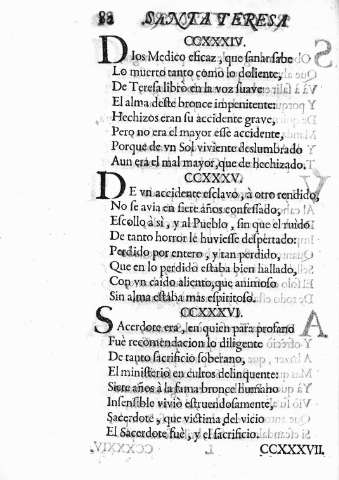 88 SANTA TERESA
CCXXXIV.
DIos Medico eficaz, que sanar sabe
Lo muerto tanto como lo doliente,
De Teresa librò en la voz suave
El alma deste bronce impenitente:
Hechizos eran su accidente grave,
Pero no era el mayor esse accidente,
Porque de vn Sol viviente deslumbrado
Aun era el mal mayor, que de hechizado.
CCXXXV.
DE vn accidente esclavo, à otro rendido,
No se avia en siete años confessado,
Escollo à sì, y al Pueblo, sin que el ruido
De tanto horror le huviesse despertado:
Perdido por entero, y tan perdido,
Que en lo perdido estaba bien hallado,
Cop vn caido aliento, que animoso
Sin alma estaba mas espiritoso.
CCXXXVI.
SAcerdote era, en quien para profano
Fuè recomendacion lo diligente
De tanto sacrificio soberano,
El ministerio en cultos delinquente:
Siete años à la fama bronce humano
Insensible viviò estruendosamente,
Sacerdote, que victima del vicio
El Sacerdote fuè, y el sacrificio.
CCXXXVII.